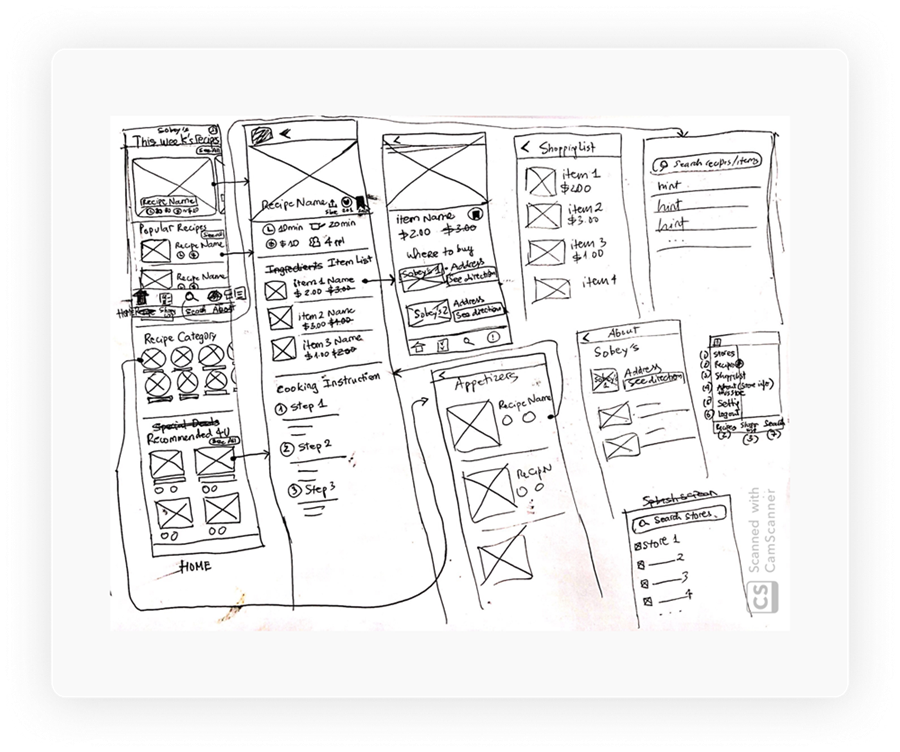 Sobey's
This Week's Recipes
See All
Recipe Name
Popular Recipes
Search
Recipe Name
Recipe Name
Home Recipe Search About
Recipe Category
Special Deals
Recommended 4U
See All
HOME
Recipe Name
10min 20min
$10 4 ppl
Ingredients Item List
item 1 Name
$2.00 $3.00
item 2 Name
$3.00 $4.00
item 3 Name
$1.00 $2.00
Cooking Instruction
1 Step 1
2 Step 2
3 Step 3
item Name
$2.00 $3.00
Where to buy
Sobey's 1 - Address
See direction
Sobey's 2 Address
See direction
Shopping List
item 1
$2.00
item 2
$3.00
item 3
$1.00
item 4
Search recipes/items
hint
hint
hint
...
Appetizers
Recipe Name
Recip N
About
Sobey's
Address
See direction
Stores
Recipe
Shopp List
About (Store info)
Logout
Recipes Shopp Search
Splash screen
Search Stores
Store 1
2
3
4
...
Scanned with
CamScanner
CS